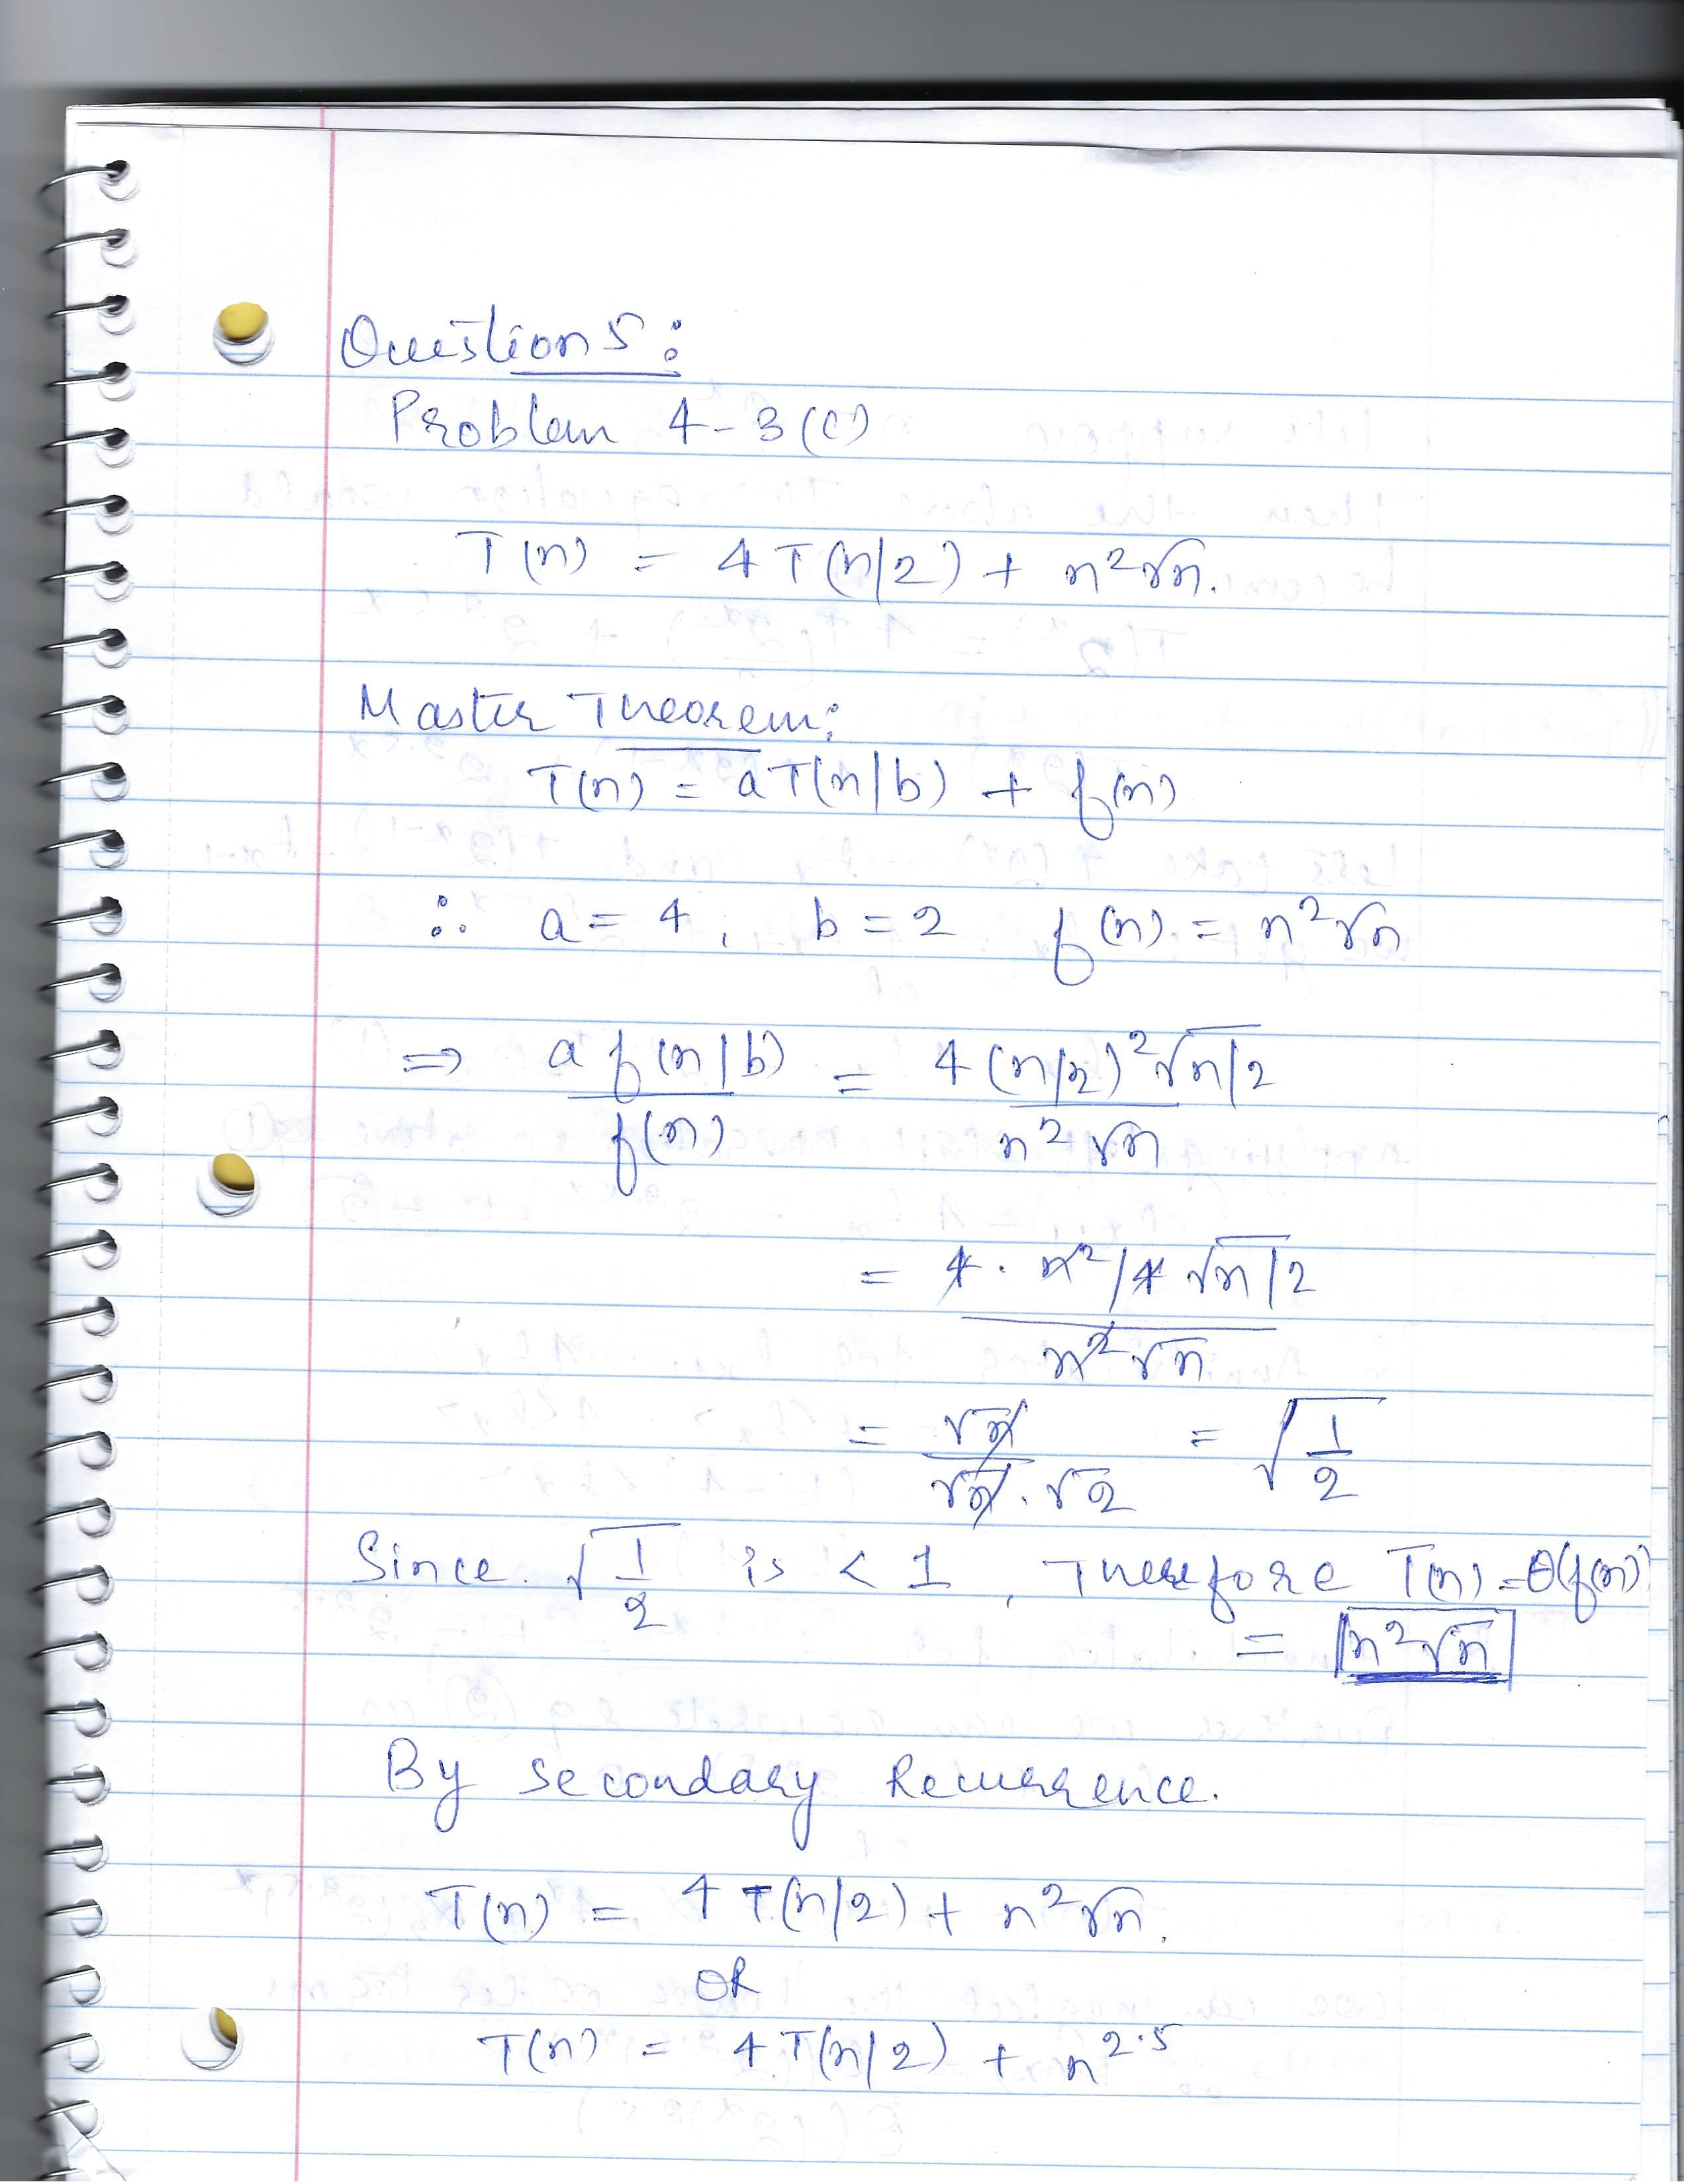 Question 5:
Problem 4-3(c)
T(n) = 4T(n/2) + n²√n.
Master Theorem:
T(n) = aT(n/b) + f(n)
∴ a = 4, b = 2 f(n) = n²√n
⇒ a f(n/b) / f(n) = 4(n/2)²√n/2 / n²√n
= 4·n²/4 √n/2 / n²√n
= √n / √n·√2 = √1/2
Since √1/2 is < 1, Therefore T(n) = Θ(f(n))
= n²√n
By secondary Recurrence.
T(n) = 4T(n/2) + n²√n.
OR
T(n) = 4T(n/2) + n^2.5